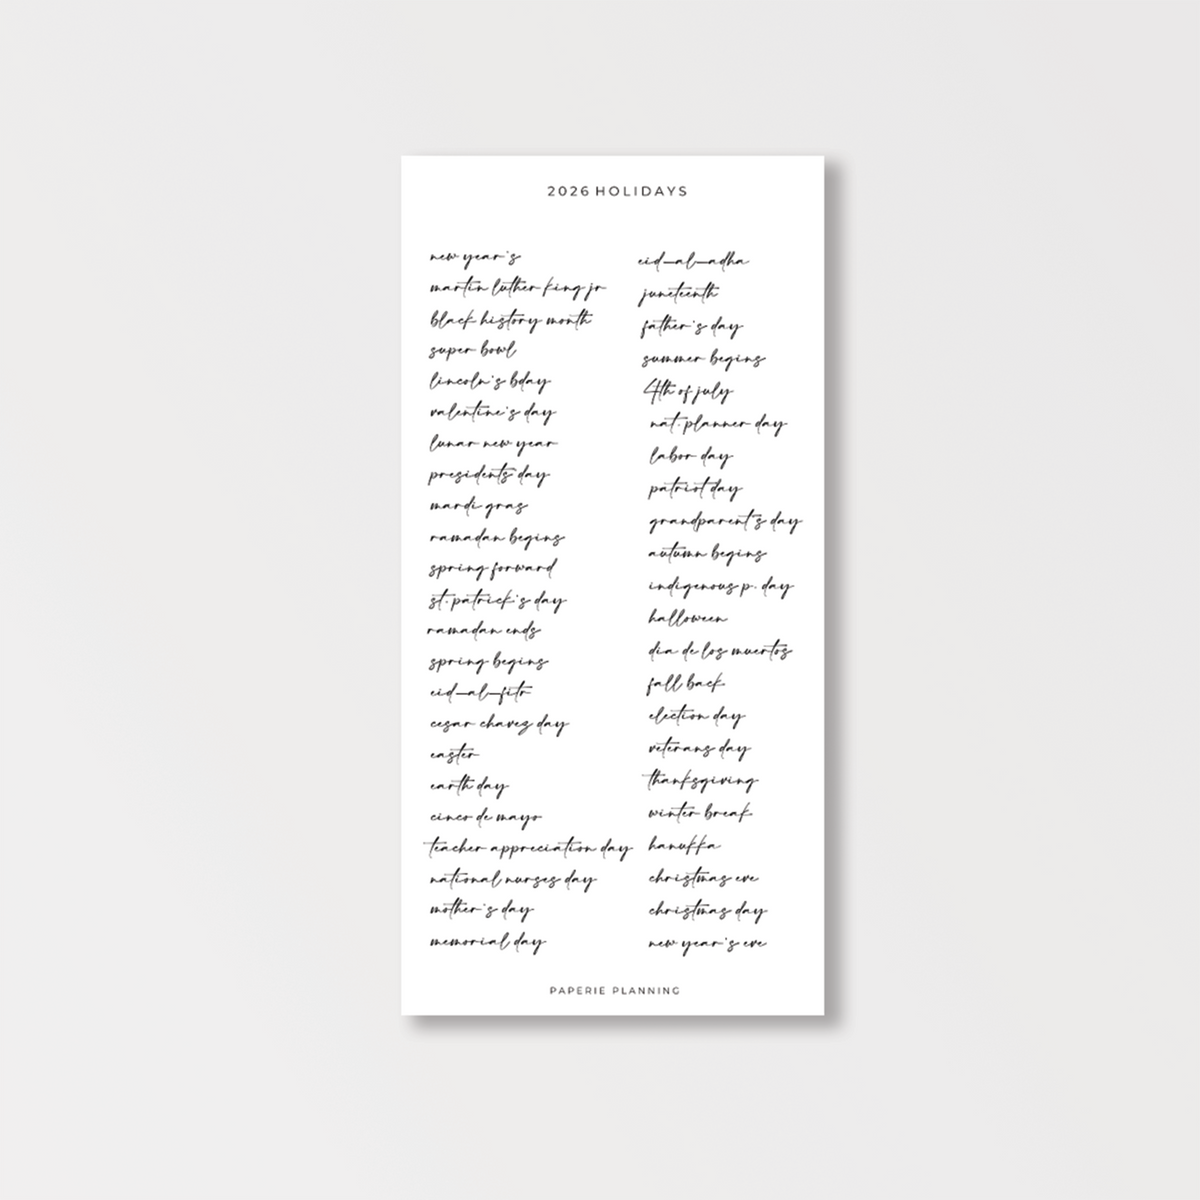 2026 HOLIDAYS
new year's
martin luther king jr
black history month
super bowl
lincoln's bday
valentine's day
lunar new year
presidents' day
mardi gras
ramadan begins
spring forward
st. patrick's day
ramadan ends
spring begins
eid-al-fitr
cesar chavez day
easter
earth day
cinco de mayo
teacher appreciation day
national nurses day
mother's day
memorial day
eid-al-adha
juneteenth
father's day
summer begins
4th of july
nat. planner day
labor day
patriot day
grandparent's day
autumn begins
indigenous p. day
halloween
dia de los muertos
fall back
election day
veterans day
thanksgiving
winter break
hanukka
christmas eve
christmas day
new year's eve
PAPERIE PLANNING